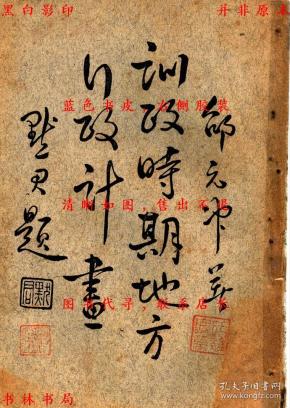 黑白影印
并非原本
邵元冲著
訓政時期地方
行政計畫
默君題
默君
蓝色书皮 右侧胶装
清晰如图,售出不退
图书代寻,联系店主
书林书局
孔子旧书网